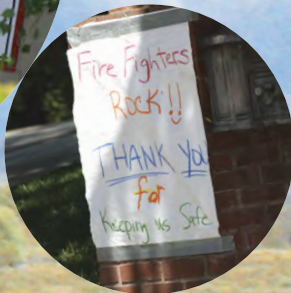 Fire Fighters
ROCK!!
THANK YOU
for
Keeping us Safe